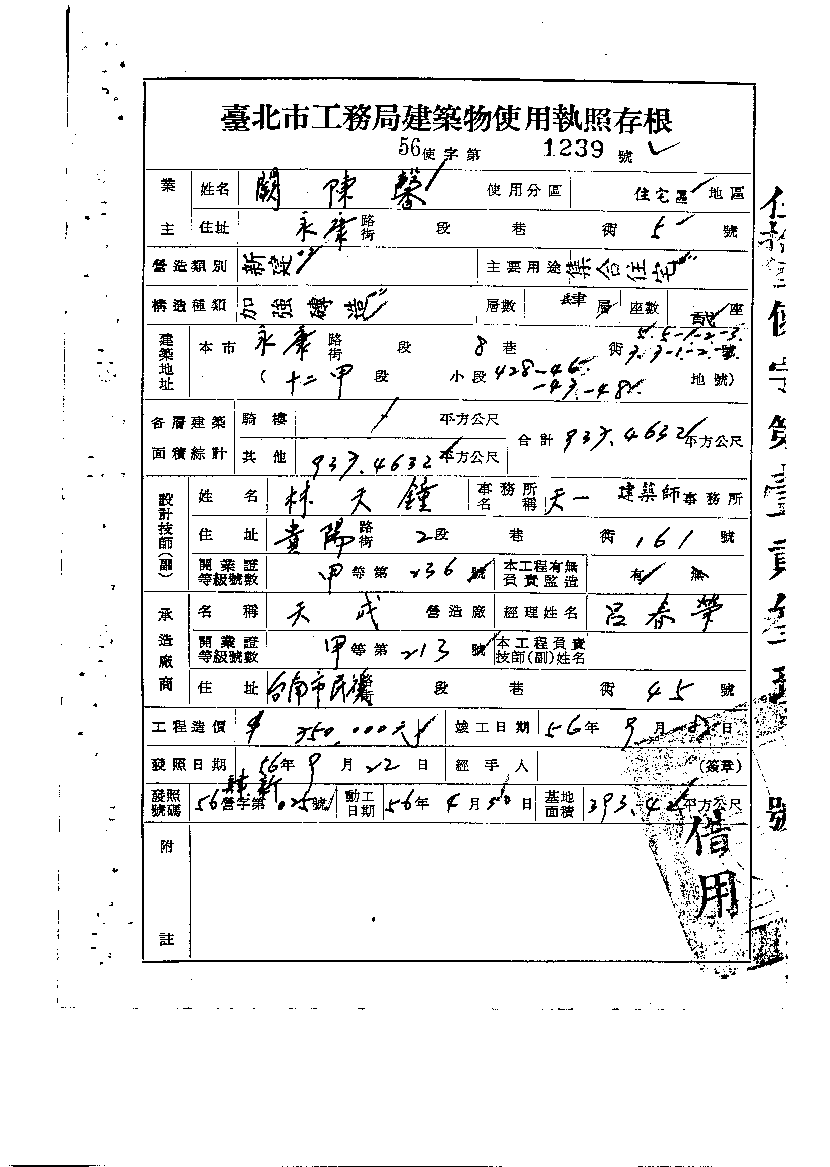 臺北市工務局建築物使用執照存根
56使字第 1239 號
業主 姓名 闕陳馨 使用分區 住宅區 地區
住址 永康路街 段 巷 衖 5 號
營造類別 新建 主要用途 集合住宅
構造種類 加強磚造 層數 肆層 座數 座
建築地址 本市 永康路街 段 8巷 衖 號
(十二甲段 小段 428-46 -47-48 地號)
各層建築面積綜計 騎樓 平方公尺 合計 937.4632平方公尺
其他 937.4632平方公尺
設計技師(副) 姓名 林天鐘 事務所名稱 天一 建築師事務所
住址 貴陽路街 2段 巷 衖 161 號
開業證等級號數 甲等第 236 號 本工程有無負責監造 有 無
承造廠商 名稱 天成 營造廠 經理姓名 呂春榮
開業證等級號數 甲等第 213 號 本工程負責技師(副)姓名
住址 台南市民權路街 段 巷 衖 45 號
工程造價 350,000元 竣工日期 56年 9月 日
發照日期 56年9月22日 經手人 (簽章)
發照號碼 56營字第 025號 動工日期 56年4月30日 基地面積 393.42平方公尺
附註
借用
號